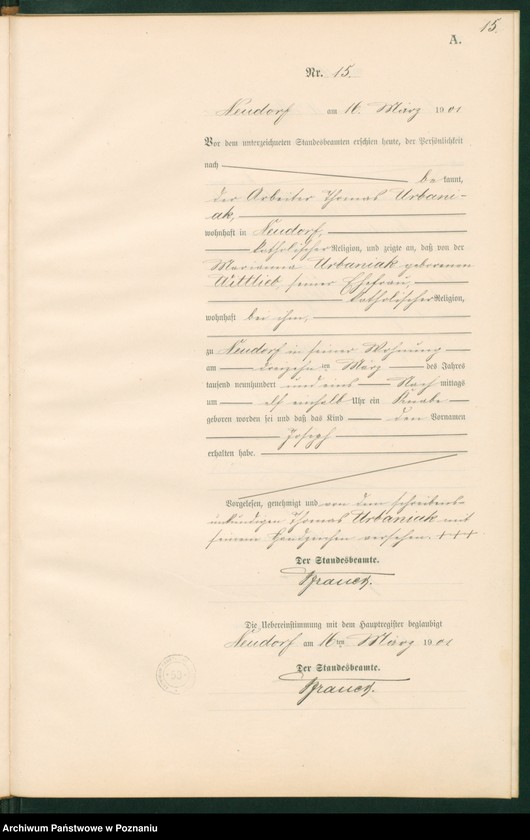 15.
A.
Nr. 15.
Neudorf am 16. März 1901
Vor dem unterzeichneten Standesbeamten erschien heute, der Persönlichkeit
nach
bekannt,
der Arbeiter Thomas Urbani-
ak,
wohnhaft in Neudorf,
katholischer Religion, und zeigte an, daß von der
Marianna Urbaniak geborenen
Wittlieb, seiner Ehefrau,
katholischer Religion,
wohnhaft bei ihm,
zu Neudorf in seiner Wohnung
am dreizehnten März des Jahres
tausend neunhundert und eins Nach mittags
um elf einhalb Uhr ein Knabe
geboren worden sei und daß das Kind den Vornamen
Joseph
erhalten habe.
Vorgelesen, genehmigt und von dem schreibens-
unkundigen Thomas Urbaniak mit
seinem Handzeichen versehen. +++
Der Standesbeamte.
Die Uebereinstimmung mit dem Hauptregister beglaubigt
Neudorf am 16ten März 1901
Der Standesbeamte.
Archiwum Państwowe w Poznaniu